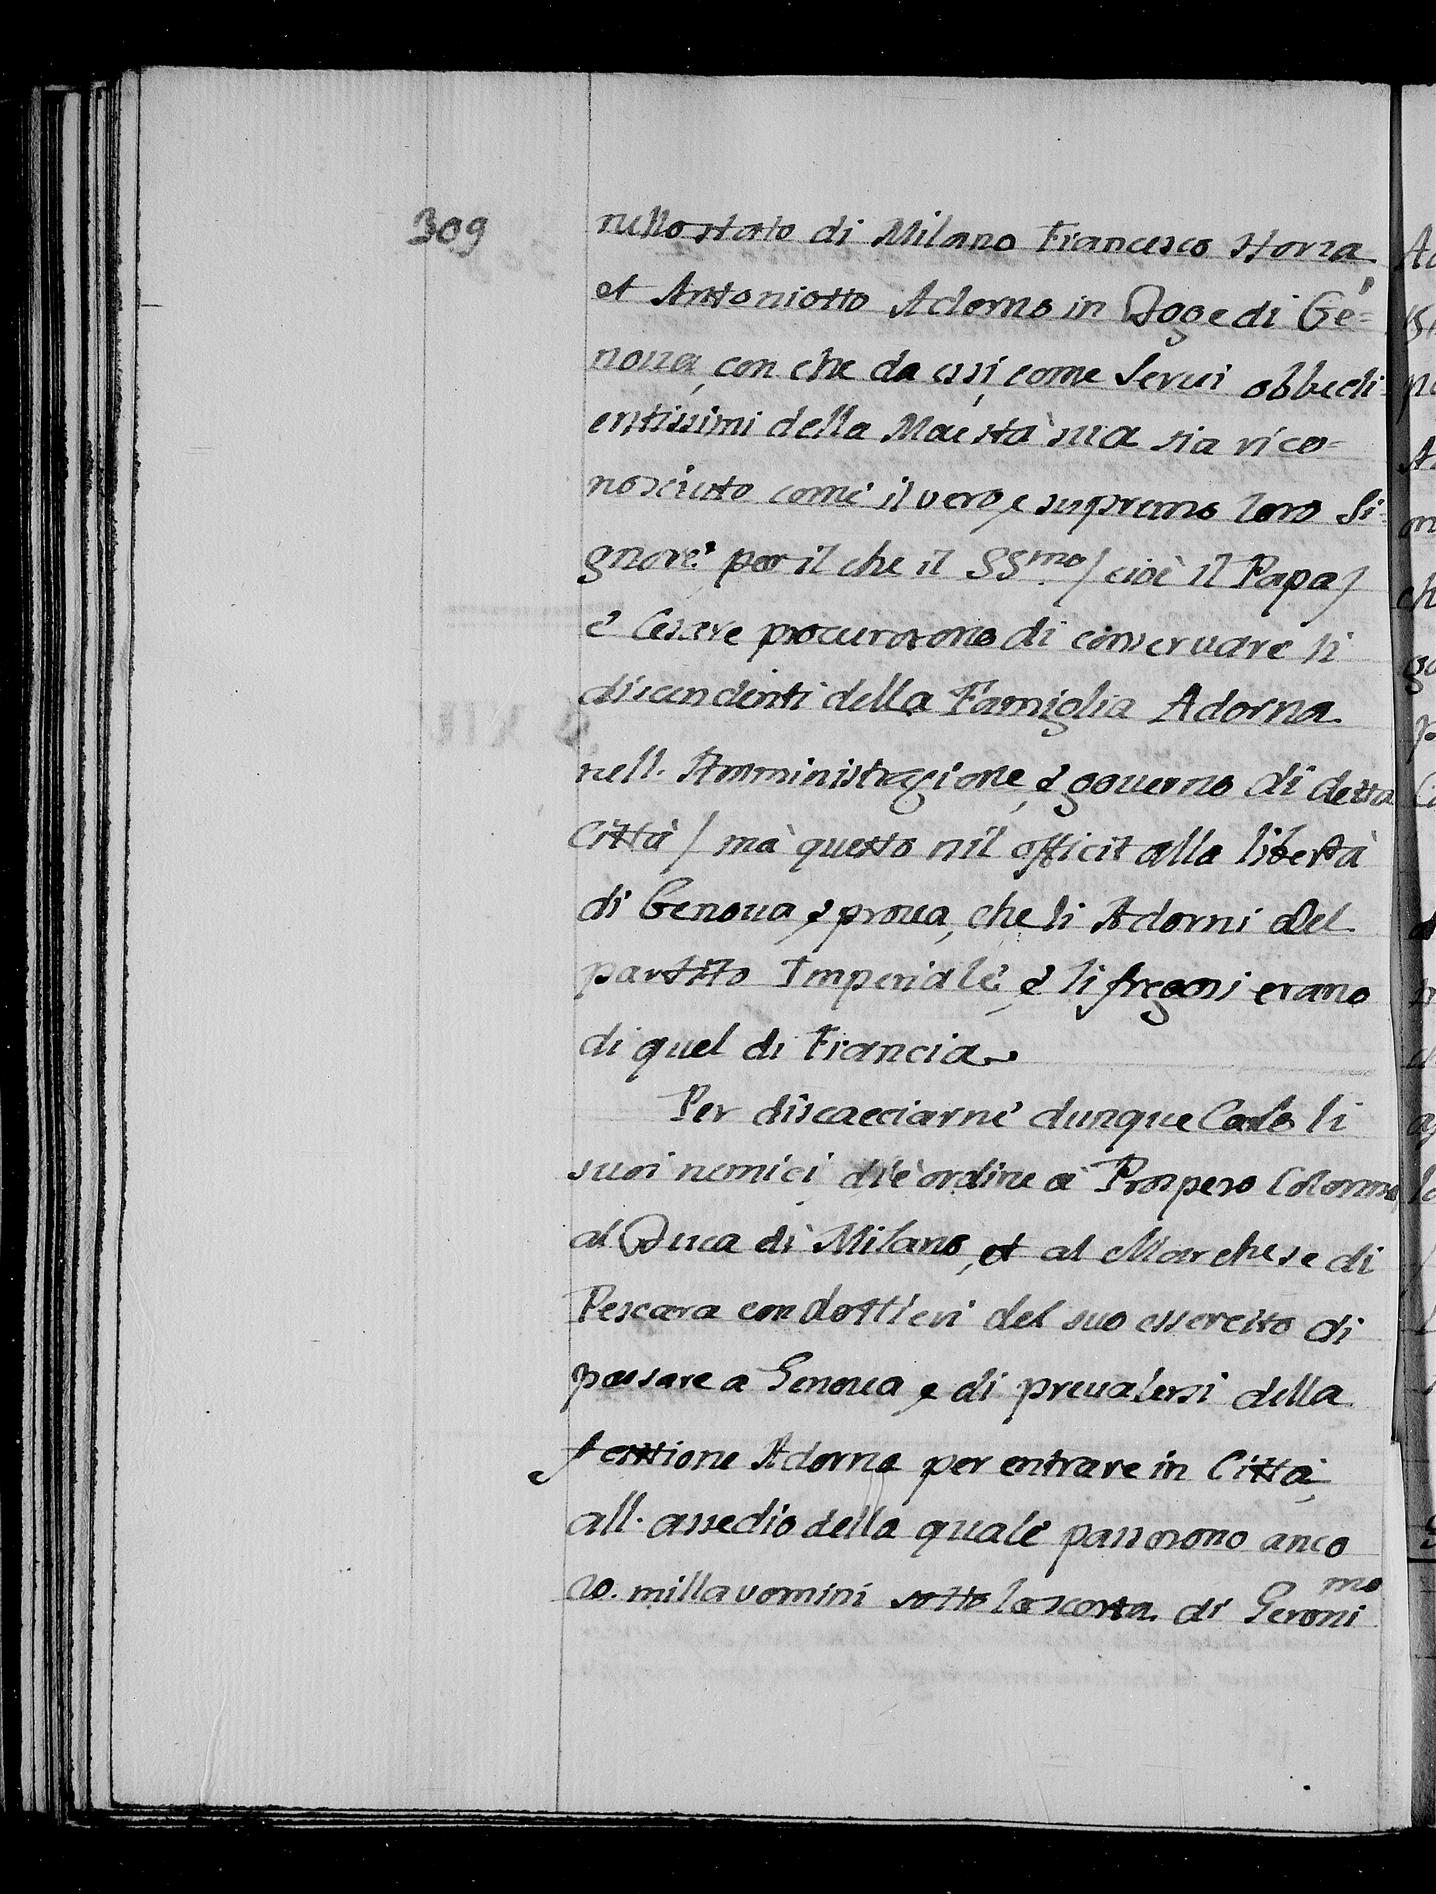 309
nello stato di Milano Francesco Sforza,
et Antoniotto Adorno in Doge di Ge=
noua, con che da essi, come Serui obbedi=
entissimi della Maestà sua sia rico=
nosciuto come il vero, e supremo loro Si=
gnore: per il che il SS.mo / cioè il Papa /
e Cesare procurorono di conseruare li
discendenti della Famiglia Adorna
nell. Amministrazione, e gouerno di detta
Città / mà questo nil officit alla libertà
di Genoua, e proua, che li Adorni del
partito Imperiale, e li fregosi erano
di quel di Francia.
Per discacciarne dunque Carlo li
suoi nemici diè ordine à Prospero Colonna,
al Duca di Milano, et al Marchese di
Pescara condottieri del suo essercito di
passare a Genoua, e di preualersi della
fattione Adorna per entrare in Città,
all. assedio della quale passorono anco
20. milla uomini sotto la scorta di Geroni mo